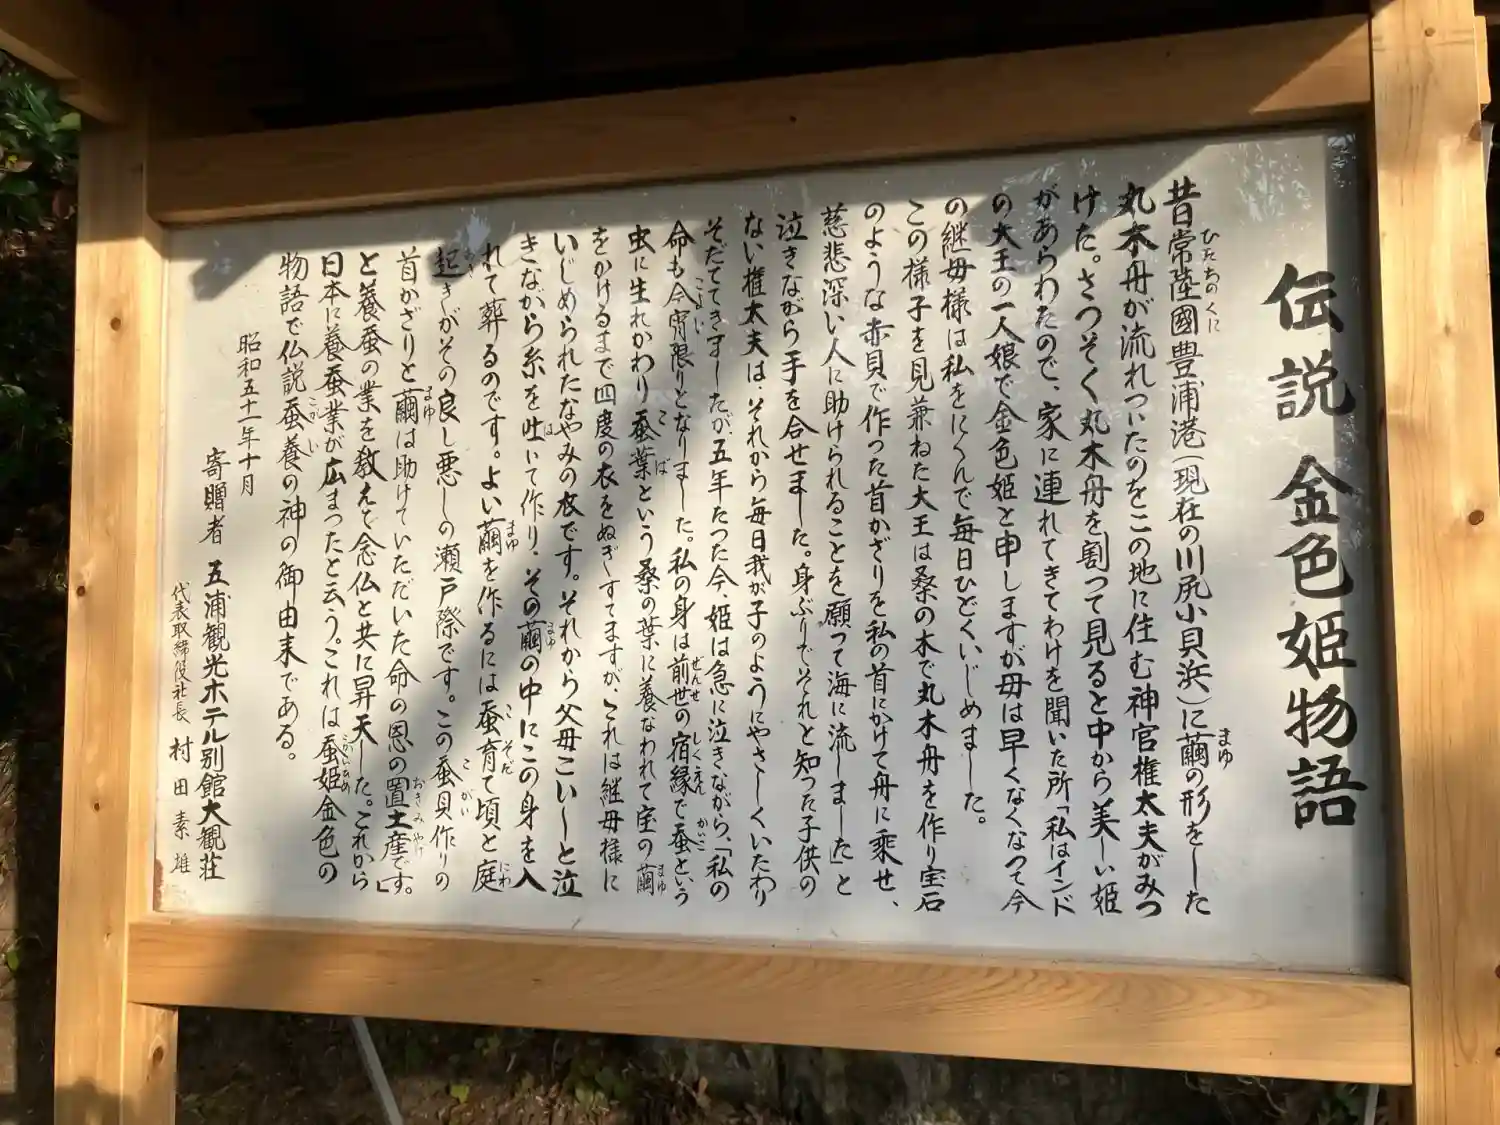 伝説 金色姫物語
昔常陸國豊浦港(現在の川尻小貝浜)に繭の形をした
ひたちのくに
まゆ
丸木舟が流れついたのをこの地に住む神官権太夫がみつ
けた。さつそく丸木舟を割つて見ると中から美しい姫
があらわたので、家に連れてきてわけを聞いた所「私はインド
の大王の一人娘で金色姫と申しますが母は早くなくなつて今
の継母様は私をにくんで毎日ひどくいじめました。
この様子を見兼ねた大王は桑の木で丸木舟を作り宝石
のような赤貝で作つた首かざりを私の首にかけて舟に乗せ、
慈悲深い人に助けられることを願つて海に流しました」と
泣きながら手を合せました。身ぶりでそれと知つた子供の
ない権太夫は、それから毎日我が子のようにやさしくいたわり
そだててきましたが、五年たつた今、姫は急に泣きながら、「私の
命も今宵限りとなりました。私の身は前世の宿縁で蚕という
こよい
ぜんせ
しくえん
かいこ
虫に生れかわり蚕葉という桑の葉に養なわれて室の繭
こば
まゆ
をかけるまで四度の衣をぬぎすてますが、これは継母様に
いじめられたなやみの衣です。それから父母こいしと泣
きなから糸を吐いて作り、その繭の中にこの身を入
は
まゆ
れて葬るのです。よい繭を作るには蚕育て頃と庭
まゆ
こそだ
にわ
起きがその良し悪しの瀬戸際です。この蚕貝作りの
おき
こがい
首かざりと繭は助けていただいた命の恩の置土産です。」
まゆ
おきみやげ
と養蚕の業を教えて念仏と共に昇天した。これから
日本に養蚕業が広まつたと云う。これは蚕姫金色の
こがいひめ
物語で仏説蚕養の神の御由来である。
こがい
昭和五十一年十月
寄贈者 五浦観光ホテル別館大観荘
代表取締役社長 村田素雄